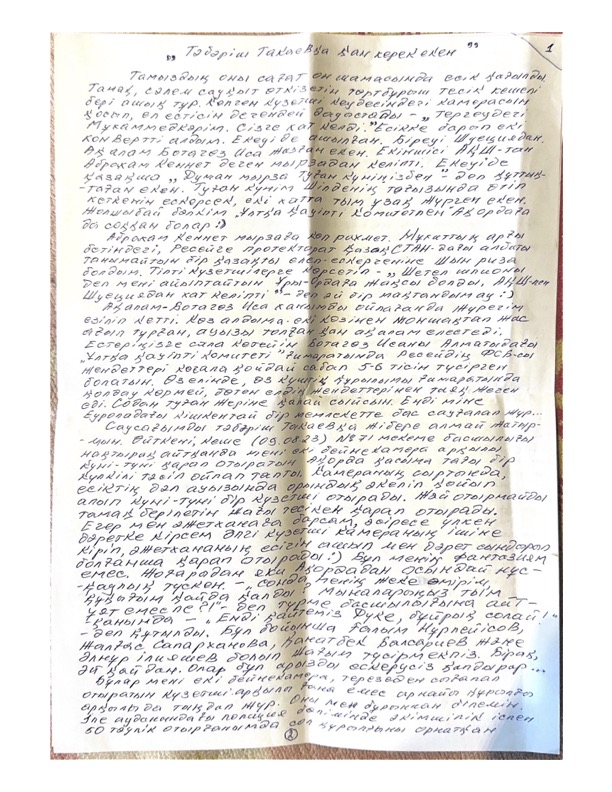 „ Тәбәріш Такаевқа қан керек екен ”
1
Тамыздың оны сағат он шамасында есік қағылды
Танақ, сәлем сауқыт өткізетін төртбұрыш тесік кешелі
бері ашық тұр. Келген күзетші кеудесіндегі камерасын
қосып, ел естісін дегендей дауыстады – „Тергеудегі
Мұхаммедкәрім. Сізге хат келді.” Есікке барып екі
конвертті алдым. Екеуі де ашылған. Біреуі Швециядан.
Ақалам Ботагөз Иса жазған екен. Екіншісі АҚШ-тан
Аброхам Кеннет деген мырзадан келіпті. Екеуі де
қазақша „Думан мырза Туған күніңізбен” – деп құттық-
-таған екен. Туған күнім Шілденің тоғызында өтіп
кеткенін ескерсек, екі хатта тым ұзақ жүрген екен.
Жолшыбай бәлкім „Ұлтқа қауіпті комитетпен” Ақордаға
да соққан болар :)
Аброхам Кеннет мырзаға көп рахмет. Мұхиттың арғы
бетіндегі, Ресейге протекторат ҚазақСТАН-дағы
танымайтын бір қазақты елеп-ескергеніне шын риза
болдым. Тіпті күзетшілерге көрсетіп – „Шетел шпионы
деп мені айыптайтын Ұры-Ордаға жақсы болды. АҚШ-пен
Швециядан хат келіпті” – деп әй бір мақтандым-ау :)
Ақалам-Ботагөз Иса ханымды ойлағанда жүрегім
езіліп кетті. Көз алдыма екі көзінен жас
ағыл тұрған, аузы толған қан ақалам елестеді.
Естеріңізге сала кетейін Ботагөз Исаны Алматыдағы
„Ұлтқа қауіпті комитеті” ғимаратында Ресейдің ФСБ-сы
жендеттері қоғала қойдай сабап 5-6 тісін түсірген
болатын. Өз елінде, өз күштік құрылымы ғимаратында
қолдау көрмей, бөтен елдің жендеттерінен таяқ жеген
еді. Содан туған жеріне қалай сыйсын. Енді міне
Еуропадағы кішкентай бір мемлекетте бас сауғалап жүр...
Саусағымды тәбәріш Такаевқа жібере алмай жатыр-
-мын. Өйткені, кеше (09.08.23) №71 мекеме басшылығы
нақтырақ айтқанда мені екі бейнекамера арқылы
күні-түні қарап отыратын Ақорда қасым тағы бір
күлкілі тәсіл ойлап тапты. Камераның сыртында,
есіктің дәл аузында орындық әкеліп қойып
алып күні-түні бір күзетші отырады. Жәй отырмайды
тамақ берілетін жағы тесікен қарап отырады.
Егер мен әжетханаға барсам, әсіресе үлкен
дәретке кірсем әлгі күзетші камераның ішіне
кіріп, әжетхананың есігін ашып мен дәрет сындарып
болғанша қарап отырады :) Бұл менің фантазиям
емес. Жоғарыдан яки Ақордадан осындай нұс-
-қаулық түскен. – „Сонда менің жеке өмірім,
құқығым қайда қалды Мыналарыңыз тым
ұят емес пе?!” – деп түрме басшылығына айт-
қанымда – „Енді қайтеміз Дуке, бұйрық солай!”
– деп құтылды. Бұл бойынша Ғалым Нұрпейісов,
Жалғас Сапарханова, Қанатбек Баксариев және
Әлнұр Ілияшев болып шағым түсірмекпіз. Бірақ,
әй қайдан. Олар бұл арызды ескерусіз қалдырар...
Бұлар мені екі бейнекамера, терезеден сығалап
отыратын күзетші арқылы ғана емес арнайы құралды
арқылы да тыңдап жүр. Оны мен бұрыннан білемін.
Іле ауданындағы полиция бөлімінде әкімшілік іспен
50 тәулік отырғанымда сол құрылғыны орнатқан
2